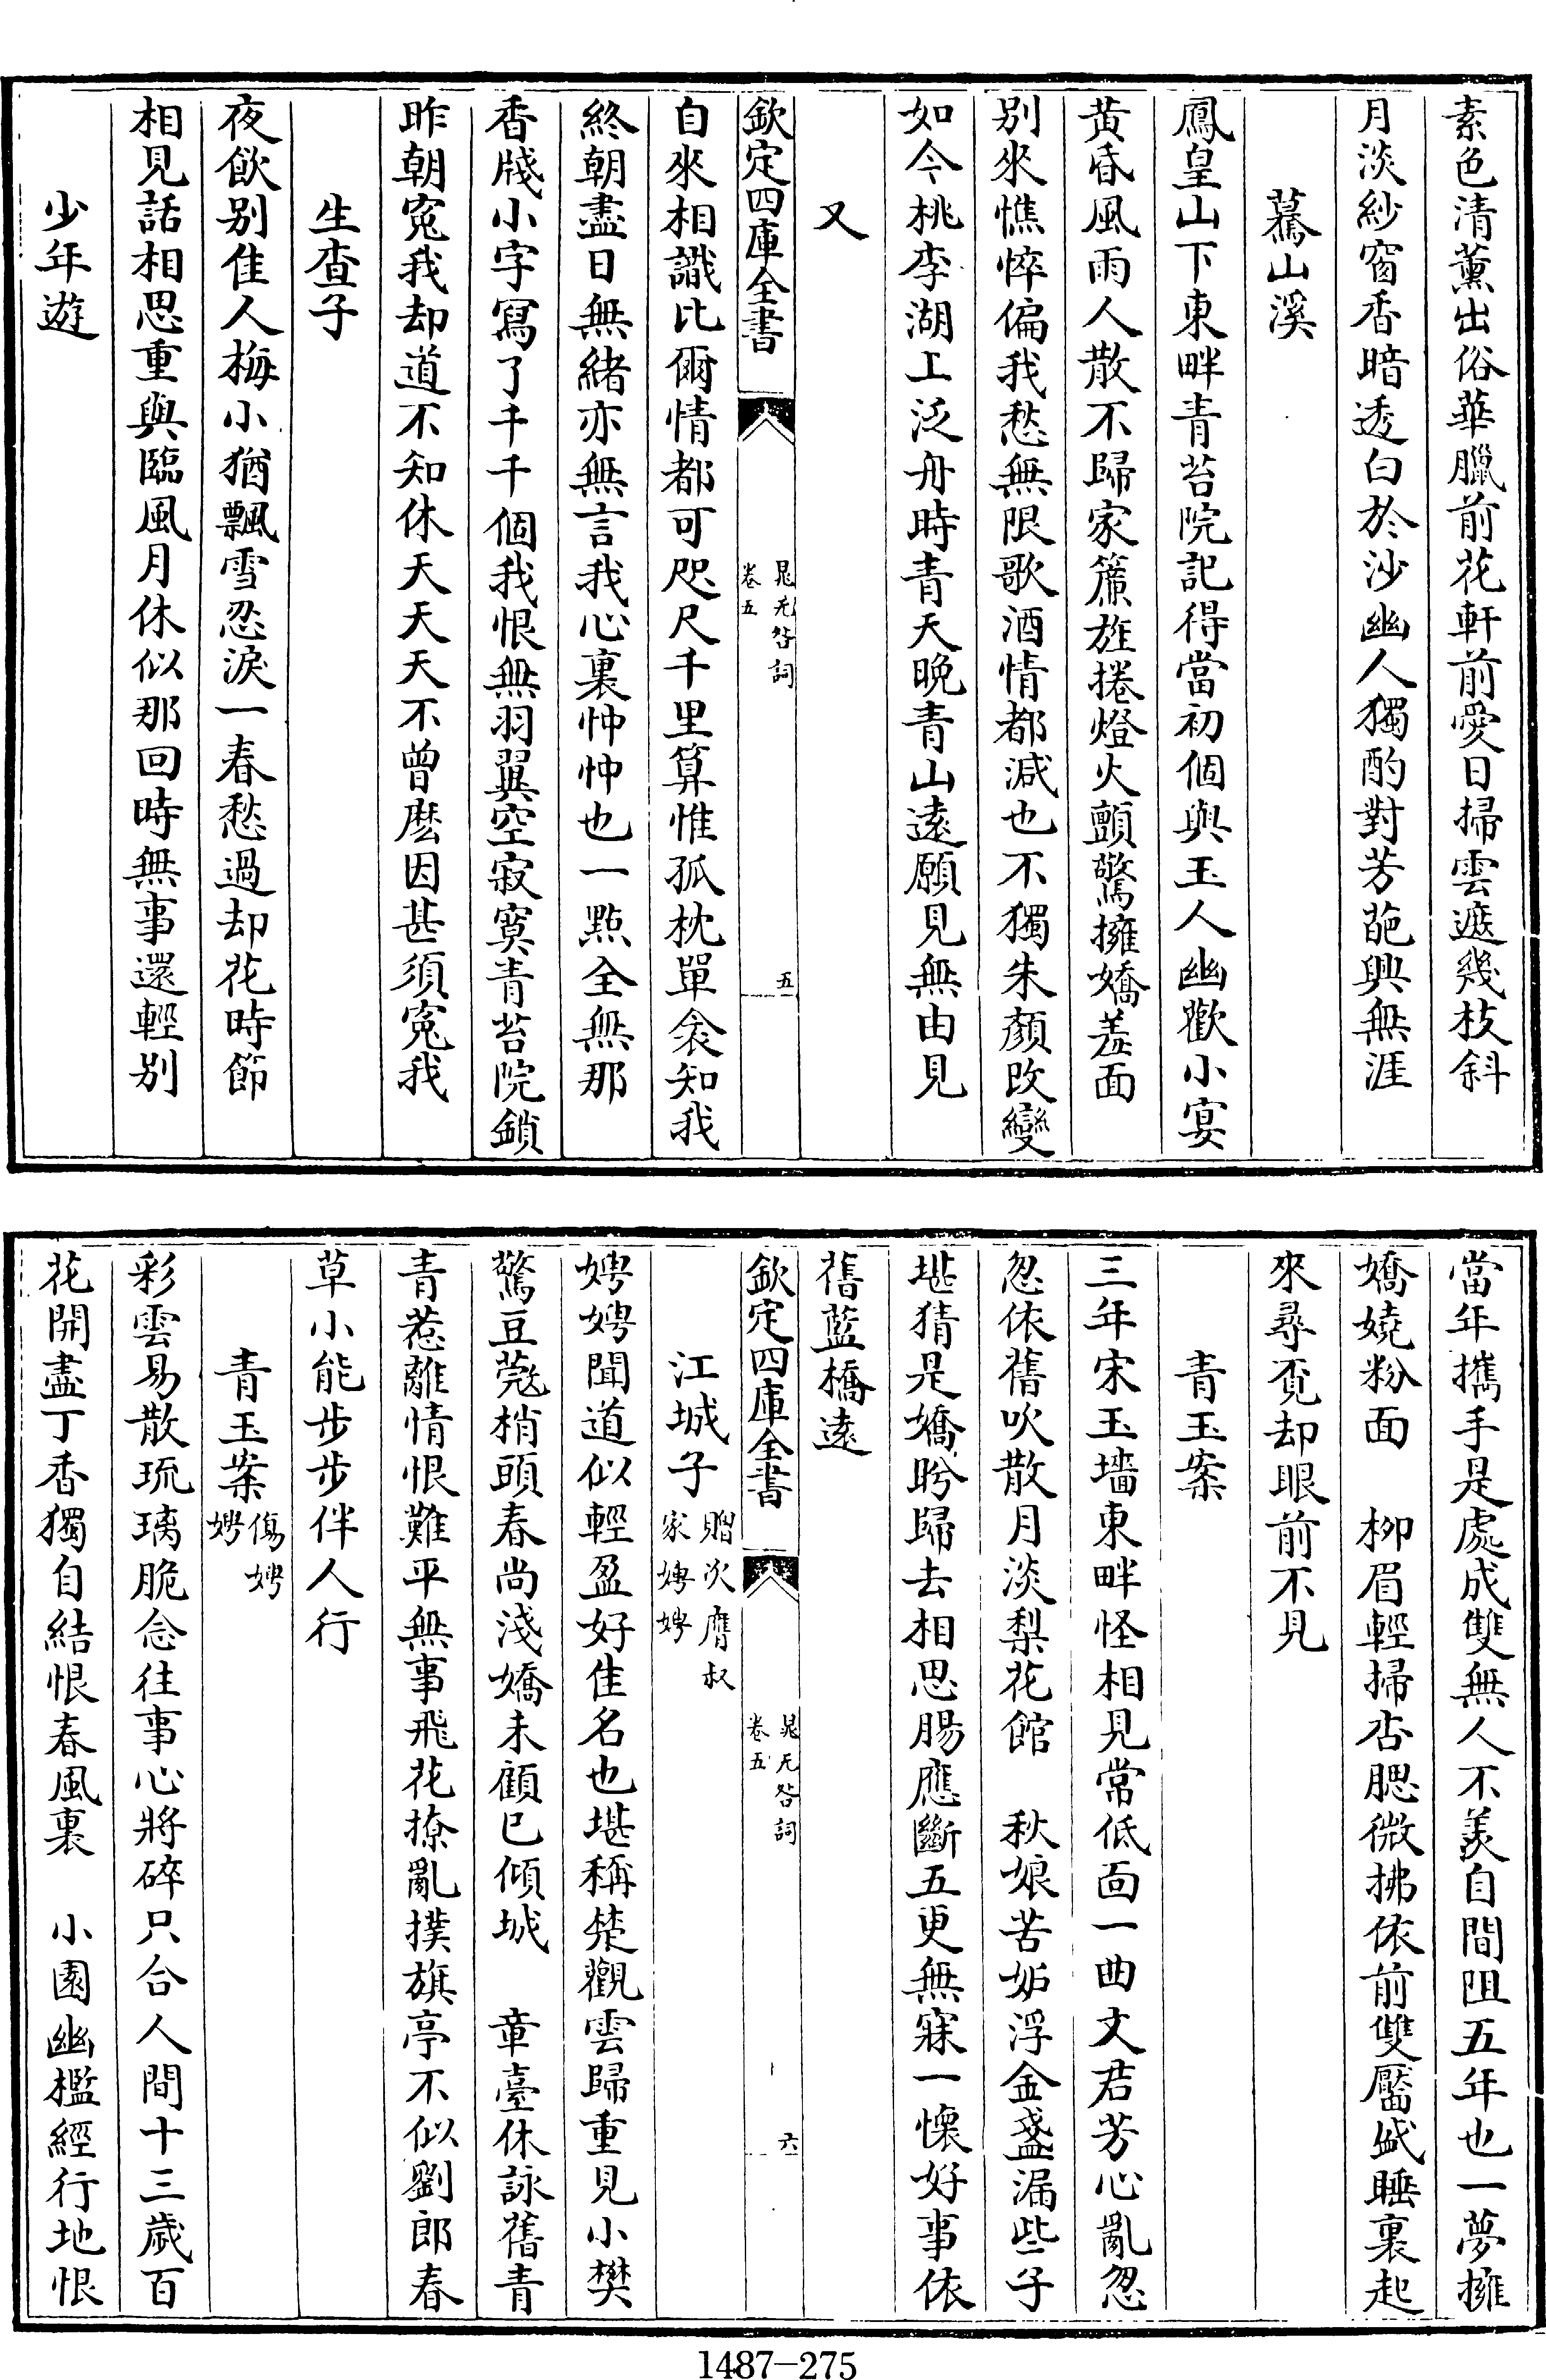 素色清薰出俗華臘前花軒前愛日掃雲遮幾枝斜
月淡紗窗香暗透白於沙幽人獨酌對芳葩興無涯
驀山溪
鳳皇山下東畔青苔院記得當初個與玉人幽歡小宴
黃昏風雨人散不歸家簾旌捲燈火顫驚擁嬌羞面
別來憔悴偏我愁無限歌酒情都減也不獨朱顏改變
如今桃李湖上泛舟時青天晚青山遠願見無由見
又
欽定四庫全書
晁无咎詞
卷五
五
自來相識比爾情都可咫尺千里算惟孤枕單衾知我
終朝盡日無緒亦無言我心裏忡忡也一點全無那
香牋小字寫了千千個我恨無羽翼空寂寞青苔院鎖
昨朝寃我却道不知休天天天不曾麽因甚須寃我
生查子
夜飲别佳人梅小猶飄雪忍淚一春愁過却花時節
相見話相思重與臨風月休似那回時無事還輕别
少年遊
當年攜手是處成雙無人不羨自間阻五年也一夢擁
嬌嬈粉面　柳眉輕掃杏腮微拂依前雙靨盛睡裏起
來尋覔却眼前不見
青玉案
三年宋玉墻東畔怪相見常低面一曲文君芳心亂忽
忽依舊吹散月淡梨花館　秋娘苦妬浮金盞漏些子
堪猜是嬌盻歸去相思腸應斷五更無寐一懷好事依
舊藍橋遠
欽定四庫全書
晁无咎詞
卷五
六
江城子贈次膺叔
家娉娉
娉娉聞道似輕盈好佳名也堪稱楚觀雲歸重見小樊
驚豆蔻梢頭春尚淺嬌未顧已傾城　章臺休詠舊青
青惹離情恨難平無事飛花撩亂撲旗亭不似劉郎春
草小能步步伴人行
青玉案傷娉
娉
彩雲易散琉璃脆念往事心將碎只合人間十三歲百
花開盡丁香獨自結恨春風裏　小園幽檻經行地恨
1487-275